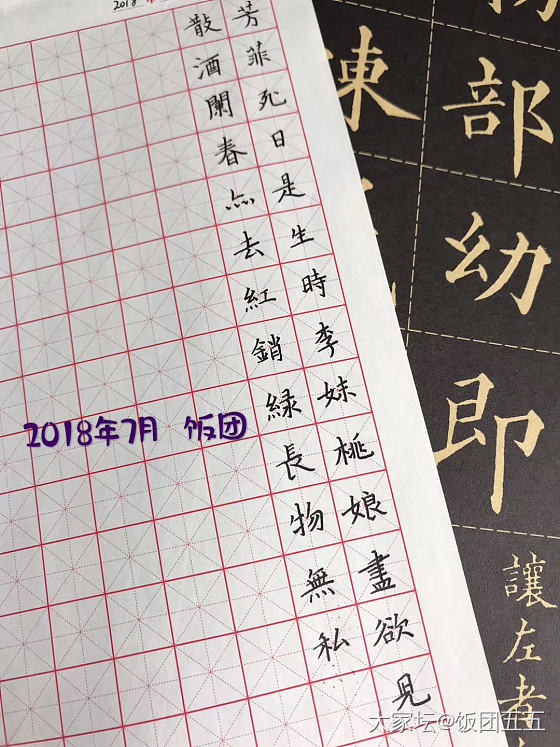 2018
芳菲死日是生時李妹桃娘盡欲見
散酒闌春亦去紅銷緑長物無私
2018年7月 饭团
陳
部幼即
讓左者
大家坛@饭团五五